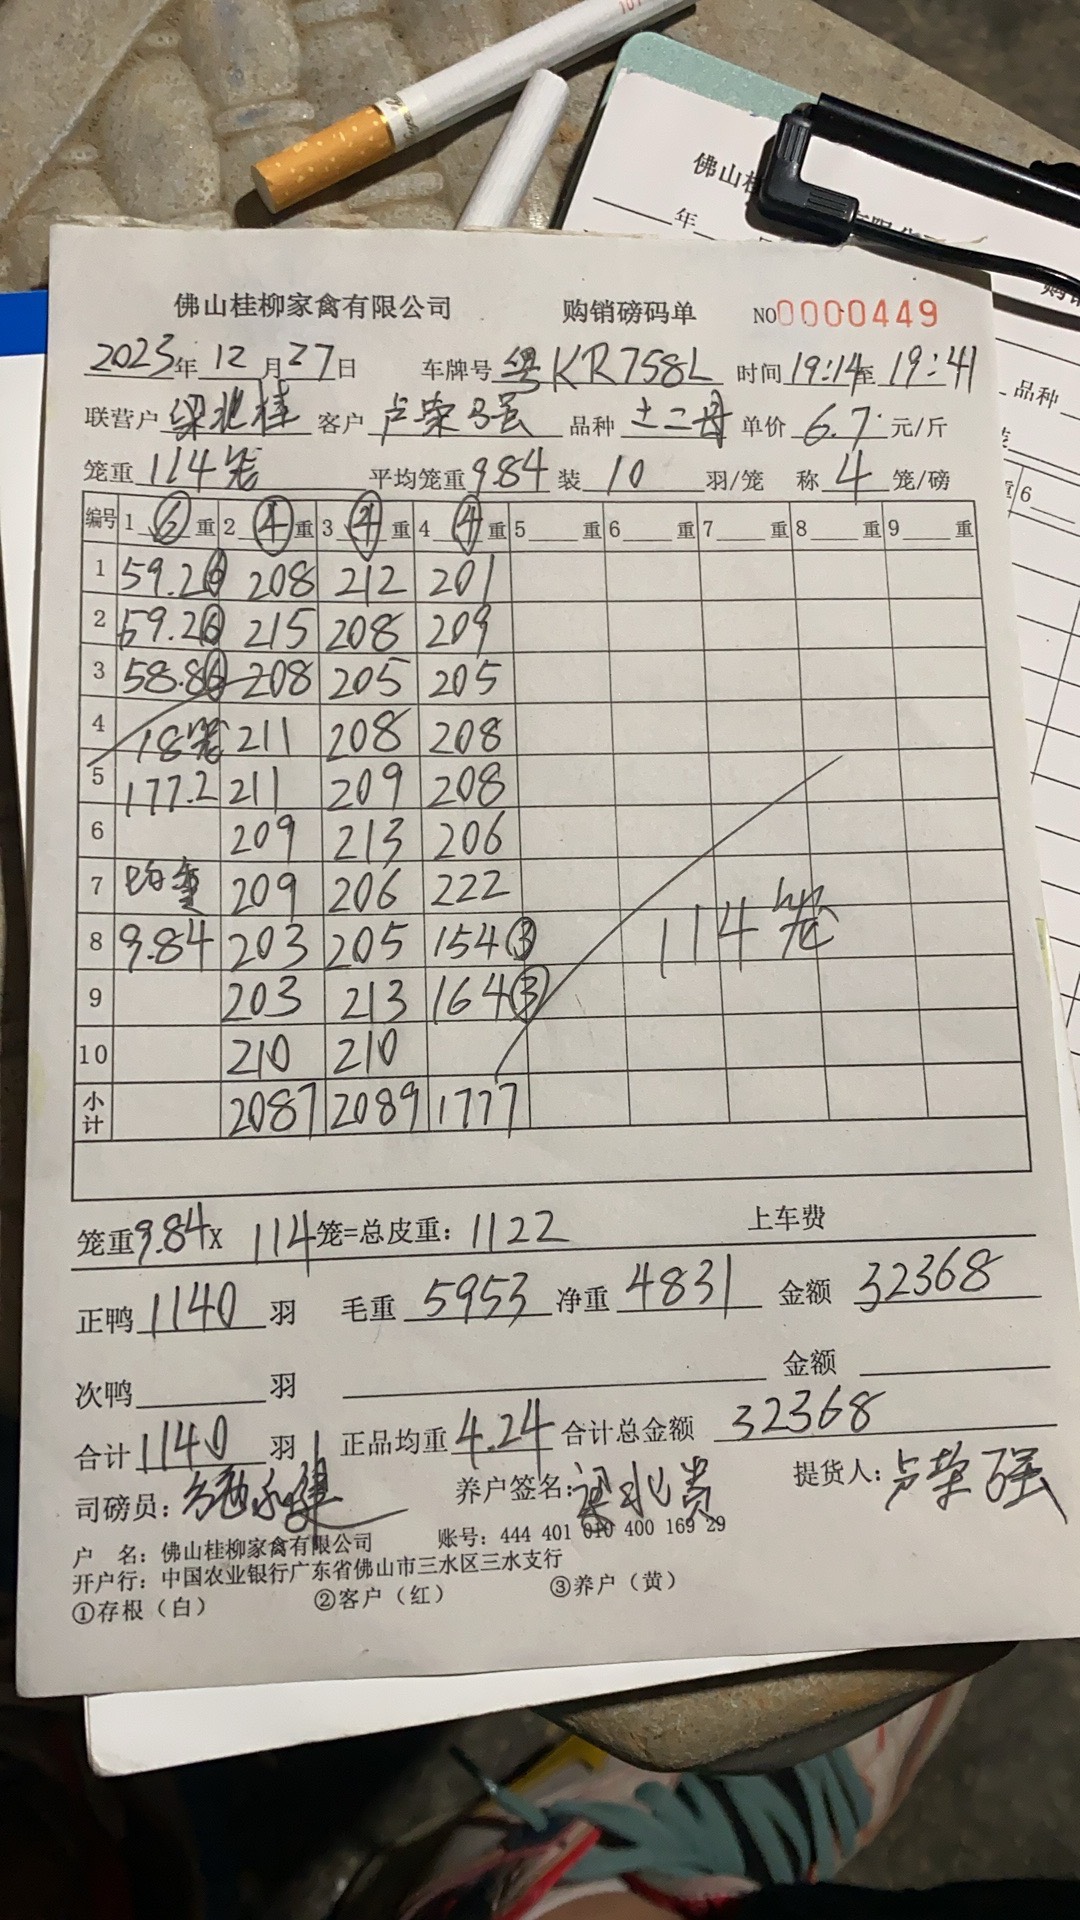 佛山桂
年
品种
佛山桂柳家禽有限公司 购销磅码单 NO0000449
2023年 12月27日 车牌号 粤KR758L 时间19:14至19:41
联营户 梁北桂 客户 卢荣强 品种 土二母 单价 6.7 元/斤
笼重 114笼 平均笼重9.84 装 10 羽/笼 称 4 笼/磅
编号 1 ⑥ 重 2 ④ 重 3 ④ 重 4 ④ 重 5 重 6 重 7 重 8 重 9 重
1 59.2⑥ 208 212 201
2 59.2⑥ 215 208 209
3 58.8⑥ 208 205 205
4 18笼 211 208 208
5 177.2 211 209 208
6 209 213 206
7 均重 209 206 222
8 9.84 203 205 154③ 114笼
9 203 213 164③
10 210 210
小计 2087 2089 1777
笼重9.84x 114笼=总皮重: 1122 上车费
正鸭 1140 羽 毛重 5953 净重 4831 金额 32368
次鸭 羽 金额
合计 1140 羽 正品均重 4.24 合计总金额 32368
司磅员: 养户签名: 梁北贵 提货人: 卢荣强
户 名: 佛山桂柳家禽有限公司 账号: 444 401 010 400 169 29
开户行: 中国农业银行广东省佛山市三水区三水支行
①存根（白） ②客户（红） ③养户（黄）